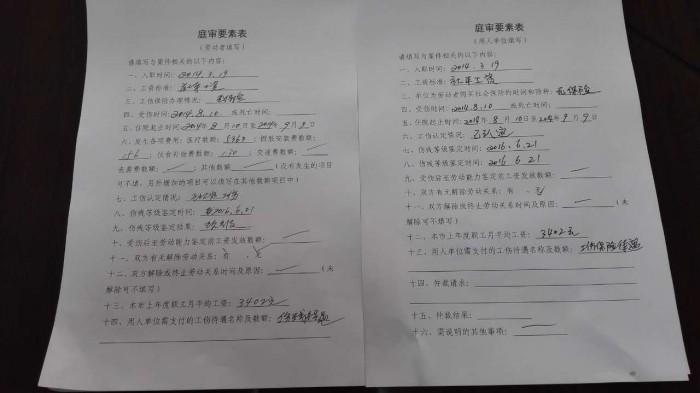 庭审要素表
（劳动者填写）
请填写与案件相关的以下内容：
一、入职时间：2014.3.19
二、工资标准：
三、工伤保险办理情况：
四、受伤时间：2014.8.10 或死亡时间：
五、住院起止时间：2014年8月10日至2014年9月9日
六、发生各项费用：医疗数额： ；假肢安装费数额：
；伙食补偿费数额： ；交通费数额：
丧葬费数额： ；其他数额 （没有发生的项目
可不填，另外增加的项目可以填写在其他数额项目中）
七、工伤认定情况：
八、伤残等级鉴定时间：2016.6.21
九、伤残等级鉴定结果：
十、受伤后至劳动能力鉴定前工资发放数额：
十一、双方有无解除劳动关系：有 、
十二、双方解除或终止劳动关系时间及原因： （未
解除可不填写）
十三、本市上年度职工月平均工资：3402元
十四、用人单位需支付的工伤待遇名称及数额：
庭审要素表
（用人单位填写）
请填写与案件相关的以下内容：
一、入职时间：2014.3.19
二、工资标准：
三、单位为劳动者购买社会保险的时间和险种：
四、受伤时间：2014.8.10 或死亡时间：
五、住院起止时间：2014年8月10日至2014年9月9日
六、工伤认定情况：已认定
七、伤残等级鉴定时间：2016.6.21
八、伤残等级鉴定时间：2016.6.21
九、受伤后至劳动能力鉴定前工资发放数额：
十、双方有无解除劳动关系：有 、无
十一、双方解除或终止劳动关系时间及原因： （未
解除可不填写）
十二、本市上年度职工月平均工资：3402元
十三、用人单位需支付的工伤待遇名称及数额：工伤保险待遇
十四、仲裁请求：
十五、仲裁结果：
十六、需说明的其他事项：